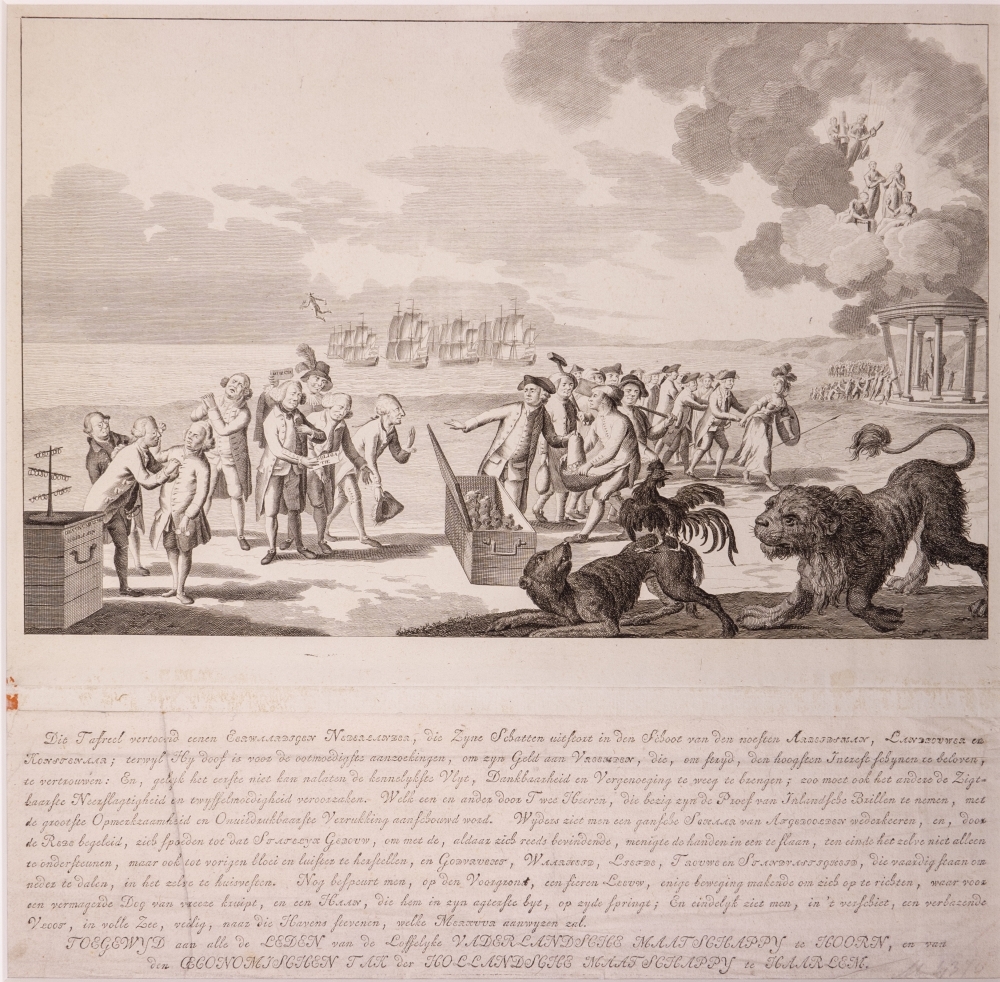 Dit Tafreel vertoond eenen EERWAARDIGEN NEDERLANDER, die Zyne Schatten uitstort in den Schoot van den noesten ARBEIDSMAN, LANDBOUWER en
KONSTENAAR; terwyl Hy doof is voor de ootmoedigste aanzoekingen, om zyn Geld aan VREEMDEN, die, om stryd, den hoogsten Intrest schynen te beloven,
te vertrouwen: En, gelyk het eerste niet kan nalaten de kennelykste Vlyt, Dankbaarheid en Vergenoeging te weeg te brengen; zoo moet ook het andere de Zigt-
baarste Neerslagtigheid en twyffelmoedigheid veroorzaken. Welk een en ander door Twee Heeren, die bezig zyn de Proef van Inlandsche Brillen te nemen, met
de grootste Opmerkzaamheid en Onuitdrukbaarste Verrukking aanschouwd word. Wyders ziet men een gansche SCHAAR van AFGEDOOLDEN wederkeeren, en, door
de REDE begeleid, zich spoeden tot dat STAATELYK GEBOUW, om met de, aldaar zich reeds bevindende, menigte de handen in een te slaan, ten einde het zelve niet alleen
te ondersteunen, maar ook tot vorigen bloei en luister te herstellen, en GODSVRUCHT, WAARHEID, LIEFDE, TROUWE en STANDVASTIGHEID, die vaardig staan om
neder te dalen, in het zelve te huisvesten. Nog bespeurt men, op den Voorgrond, een fieren LEEUW, enige beweging makende om zich op te richten, waar voor
een vermagerde Dog van vreeze kruipt, en een HAAN, die hem in zyn agterste byt, op zyde springt; En eindelyk ziet men, in 't verschiet, een verbazende
VLOOT, in volle Zee, veilig, naar die Havens stevenen, welke MERKUUR aanwyzen zal.
TOEGEWYD aan alle de LEDEN van de Loffelyke VADERLANDSCHE MAATSCHAPPY te HOORN, en van
den OECONOMISCHEN TAK der HOLLANDSCHE MAATSCHAPPY te HAARLEM.